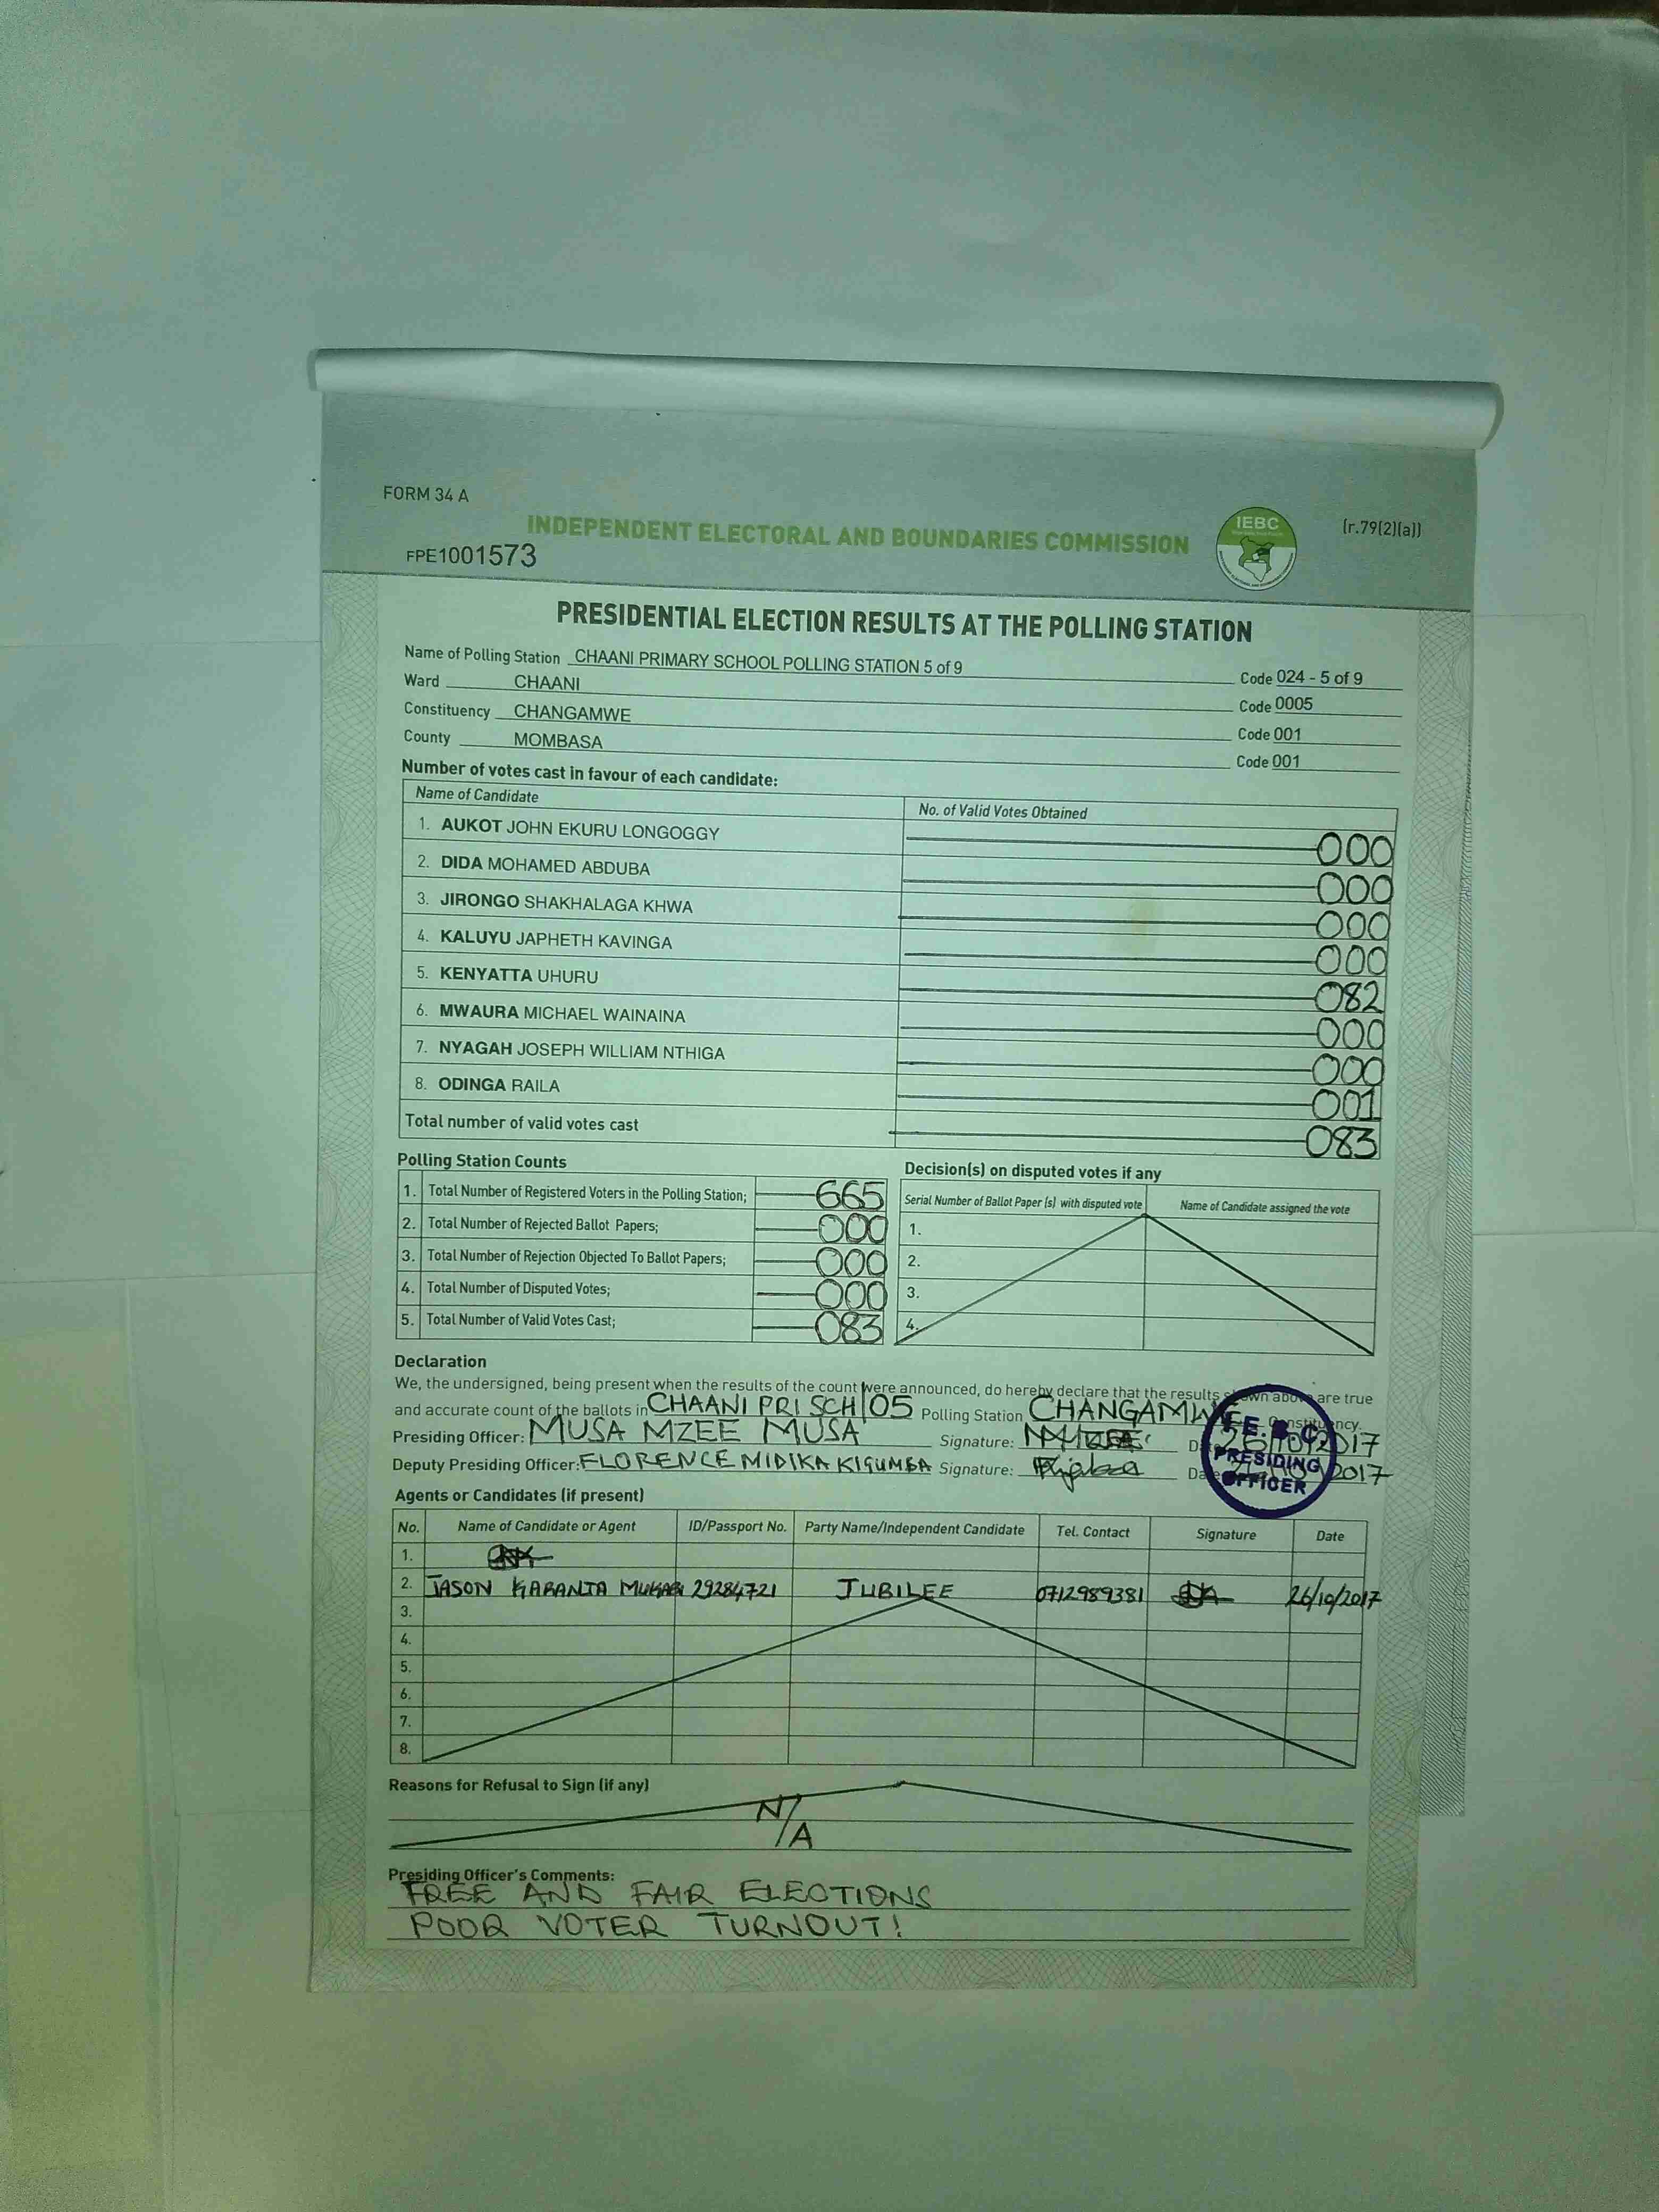 FORM 34 A
INDEPENDENT ELECTORAL AND BOUNDARIES COMMISSION
IEBC
(r.79(2)(a))
FPE1001573
PRESIDENTIAL ELECTION RESULTS AT THE POLLING STATION
Name of Polling Station CHAANI PRIMARY SCHOOL POLLING STATION 5 of 9 Code 024 - 5 of 9
Ward CHAANI Code 0005
Constituency CHANGAMWE Code 001
County MOMBASA Code 001
Number of votes cast in favour of each candidate:
Name of Candidate No. of Valid Votes Obtained
1. AUKOT JOHN EKURU LONGOGGY 000
2. DIDA MOHAMED ABDUBA 000
3. JIRONGO SHAKHALAGA KHWA 000
4. KALUYU JAPHETH KAVINGA 000
5. KENYATTA UHURU 082
6. MWAURA MICHAEL WAINAINA 000
7. NYAGAH JOSEPH WILLIAM NTHIGA 000
8. ODINGA RAILA 001
Total number of valid votes cast 083
Polling Station Counts
1. Total Number of Registered Voters in the Polling Station; 665
2. Total Number of Rejected Ballot Papers; 000
3. Total Number of Rejection Objected To Ballot Papers; 000
4. Total Number of Disputed Votes; 000
5. Total Number of Valid Votes Cast; 083
Decision(s) on disputed votes if any
Serial Number of Ballot Paper (s) with disputed vote Name of Candidate assigned the vote
1.
2.
3.
4.
Declaration
We, the undersigned, being present when the results of the count were announced, do hereby declare that the results shown above are true
and accurate count of the ballots in CHAANI PRI SCH 05 Polling Station CHANGAMWE Constituency.
Presiding Officer: MUSA MZEE MUSA Signature: Date 26/10/2017
Deputy Presiding Officer: FLORENCE MIDIKA KIGUMBA Signature: Date 2017
I.E.B.C
PRESIDING
OFFICER
Agents or Candidates (if present)
No. Name of Candidate or Agent ID/Passport No. Party Name/Independent Candidate Tel. Contact Signature Date
1.
2. JASON KARANJA MUKABI 29284721 JUBILEE 0712989381 26/10/2017
3.
4.
5.
6.
7.
8.
Reasons for Refusal to Sign (if any)
N/A
Presiding Officer's Comments:
FREE AND FAIR ELECTIONS
POOR VOTER TURNOUT!